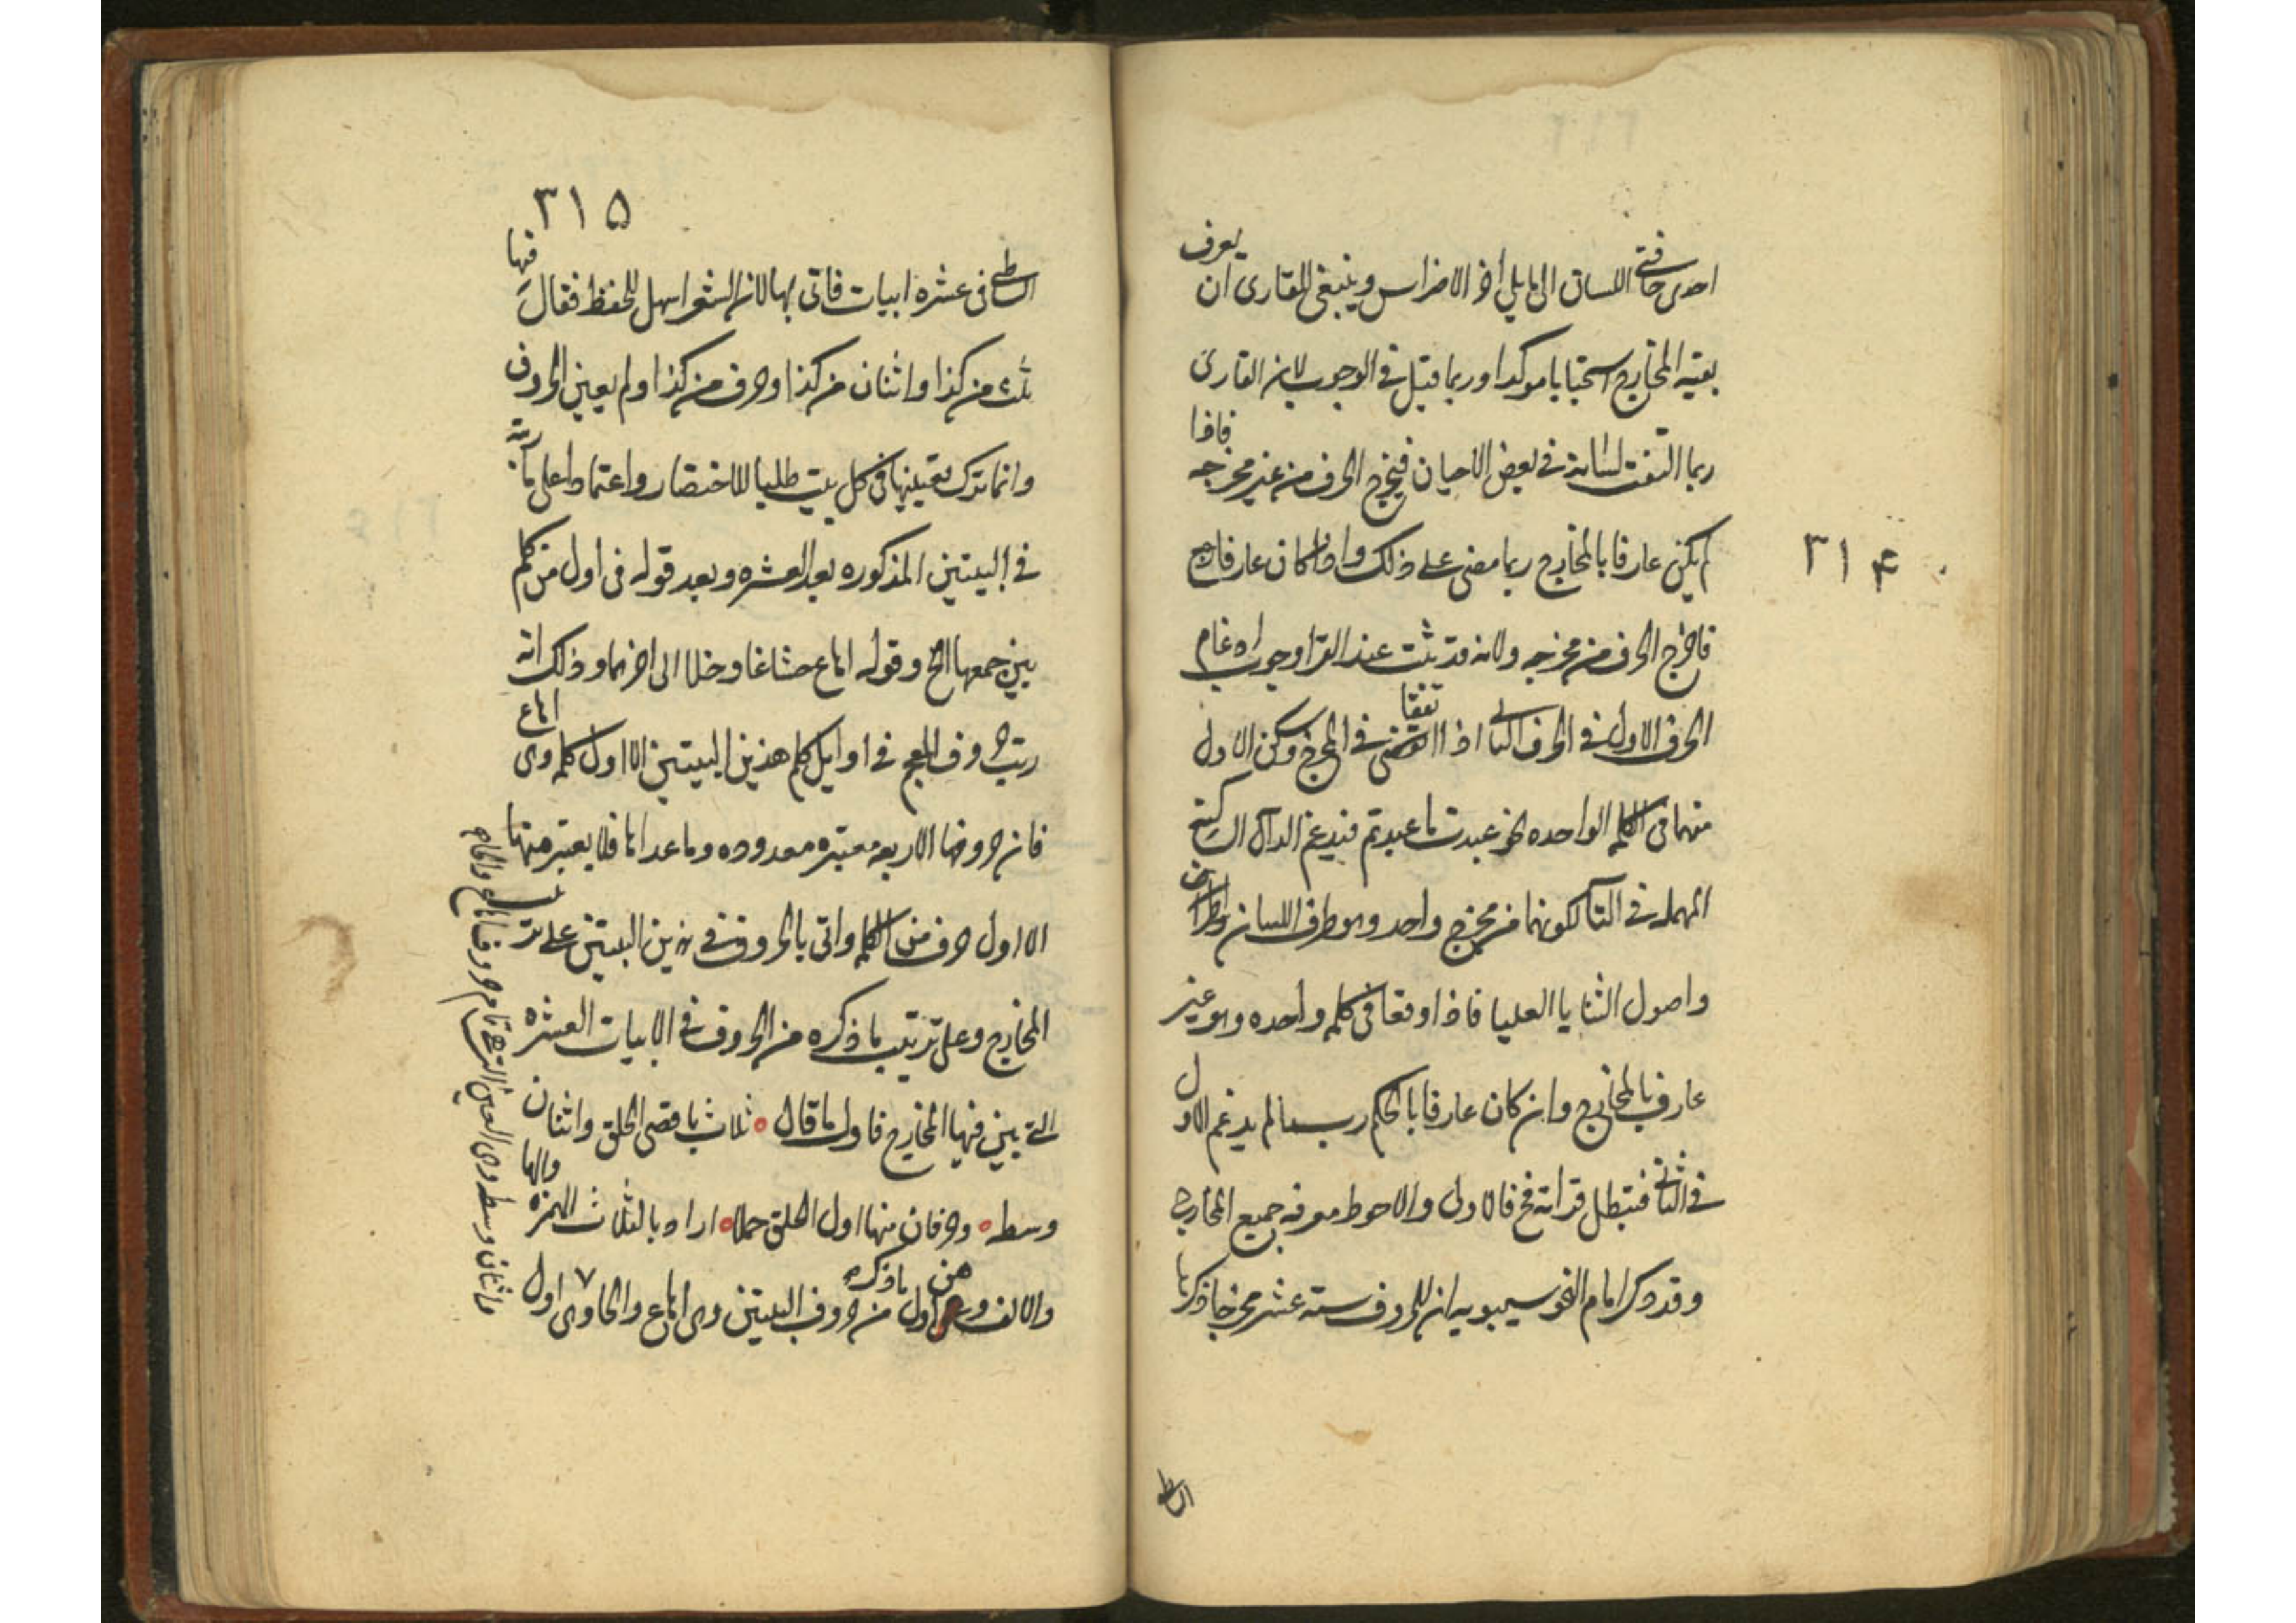 ٣١۴
احدى حافتى اللسان الى ما يلى اخر الاضراس وينبغى للقارى ان يعرف
بقيه المخارج استحبابا موكدا وربما قيل فى الوجوب لان القارى
ربما التفت لسانه فى بعض الاحيان فيخرج الحرف من غير مخرجه فاذا
لم يكن عارفا بالمخارج ربما مضى على ذلك واذا كان عارفا رجع
فاخرج الحرف من مخرجه ولانه قد ثبت عند القرا وجوب ادغام
الحرف الاول فى الحرف الثانى اذا اتفقا فى المخرج وسكن الاول
منهما فى الكلمه الواحده نحو عبدت ما عبدتم فيدغم الدال الساكنه
المهمله فى التا لكونهما من مخرج واحد وهو طرف اللسان
واصول الثنايا العليا فاذا وقعا فى كلمه واحده وهو غير
عارف بالمخارج وان كان عارفا بالحكم ربما لم يدغم الاول
فى الثانى فتبطل قراته فح فالاولى والاحوط معرفه جميع المخارج
وقد ذكر امام النحو سيبويه ان للحروف سته عشر مخرجا ذكرها
الشاطبى
٣١۵
الشاطبى فى عشره ابيات فاتى بها لان الشعر اسهل للحفظ فقال فيها
ثلث من كذا واثنان من كذا وحرف من كذا ولم يعين الحروف
وانما ترك تعيينها فى كل بيت طلبا للاختصار واعتمادا على ما رتبه
فى البيتين المذكوره بعد العشره وبعد قوله فى اول من كلم
بين جمعها الخ وقوله اهاع حشا غاو خلا الى اخرهما وذلك انه
رتب حروف المعجم فى اوايل كلم هذين البيتين الا اول كلمه وهى اهاع
فان حروفها الاربعه معتبره معدوده وما عداها فلا يعتبر منها
الا اول حرف من الكلمه واتى بالحروف فى هذين البيتين على ترتيب
المخارج وعلى ترتيب ما ذكره من الحروف فى الابيات العشره
التى بين فيها المخارج فاول ما قال ثلاث باقصى الحلق واثنان
وسطه وحرفان منها اول الحلق جملا اراد بالثلاث الهمزه والها
والالف وهن اول ما ذكره من حروف البيتين وهى اهاع والحا وهى ٧ اول
واثنان وسطه وهى العين التى